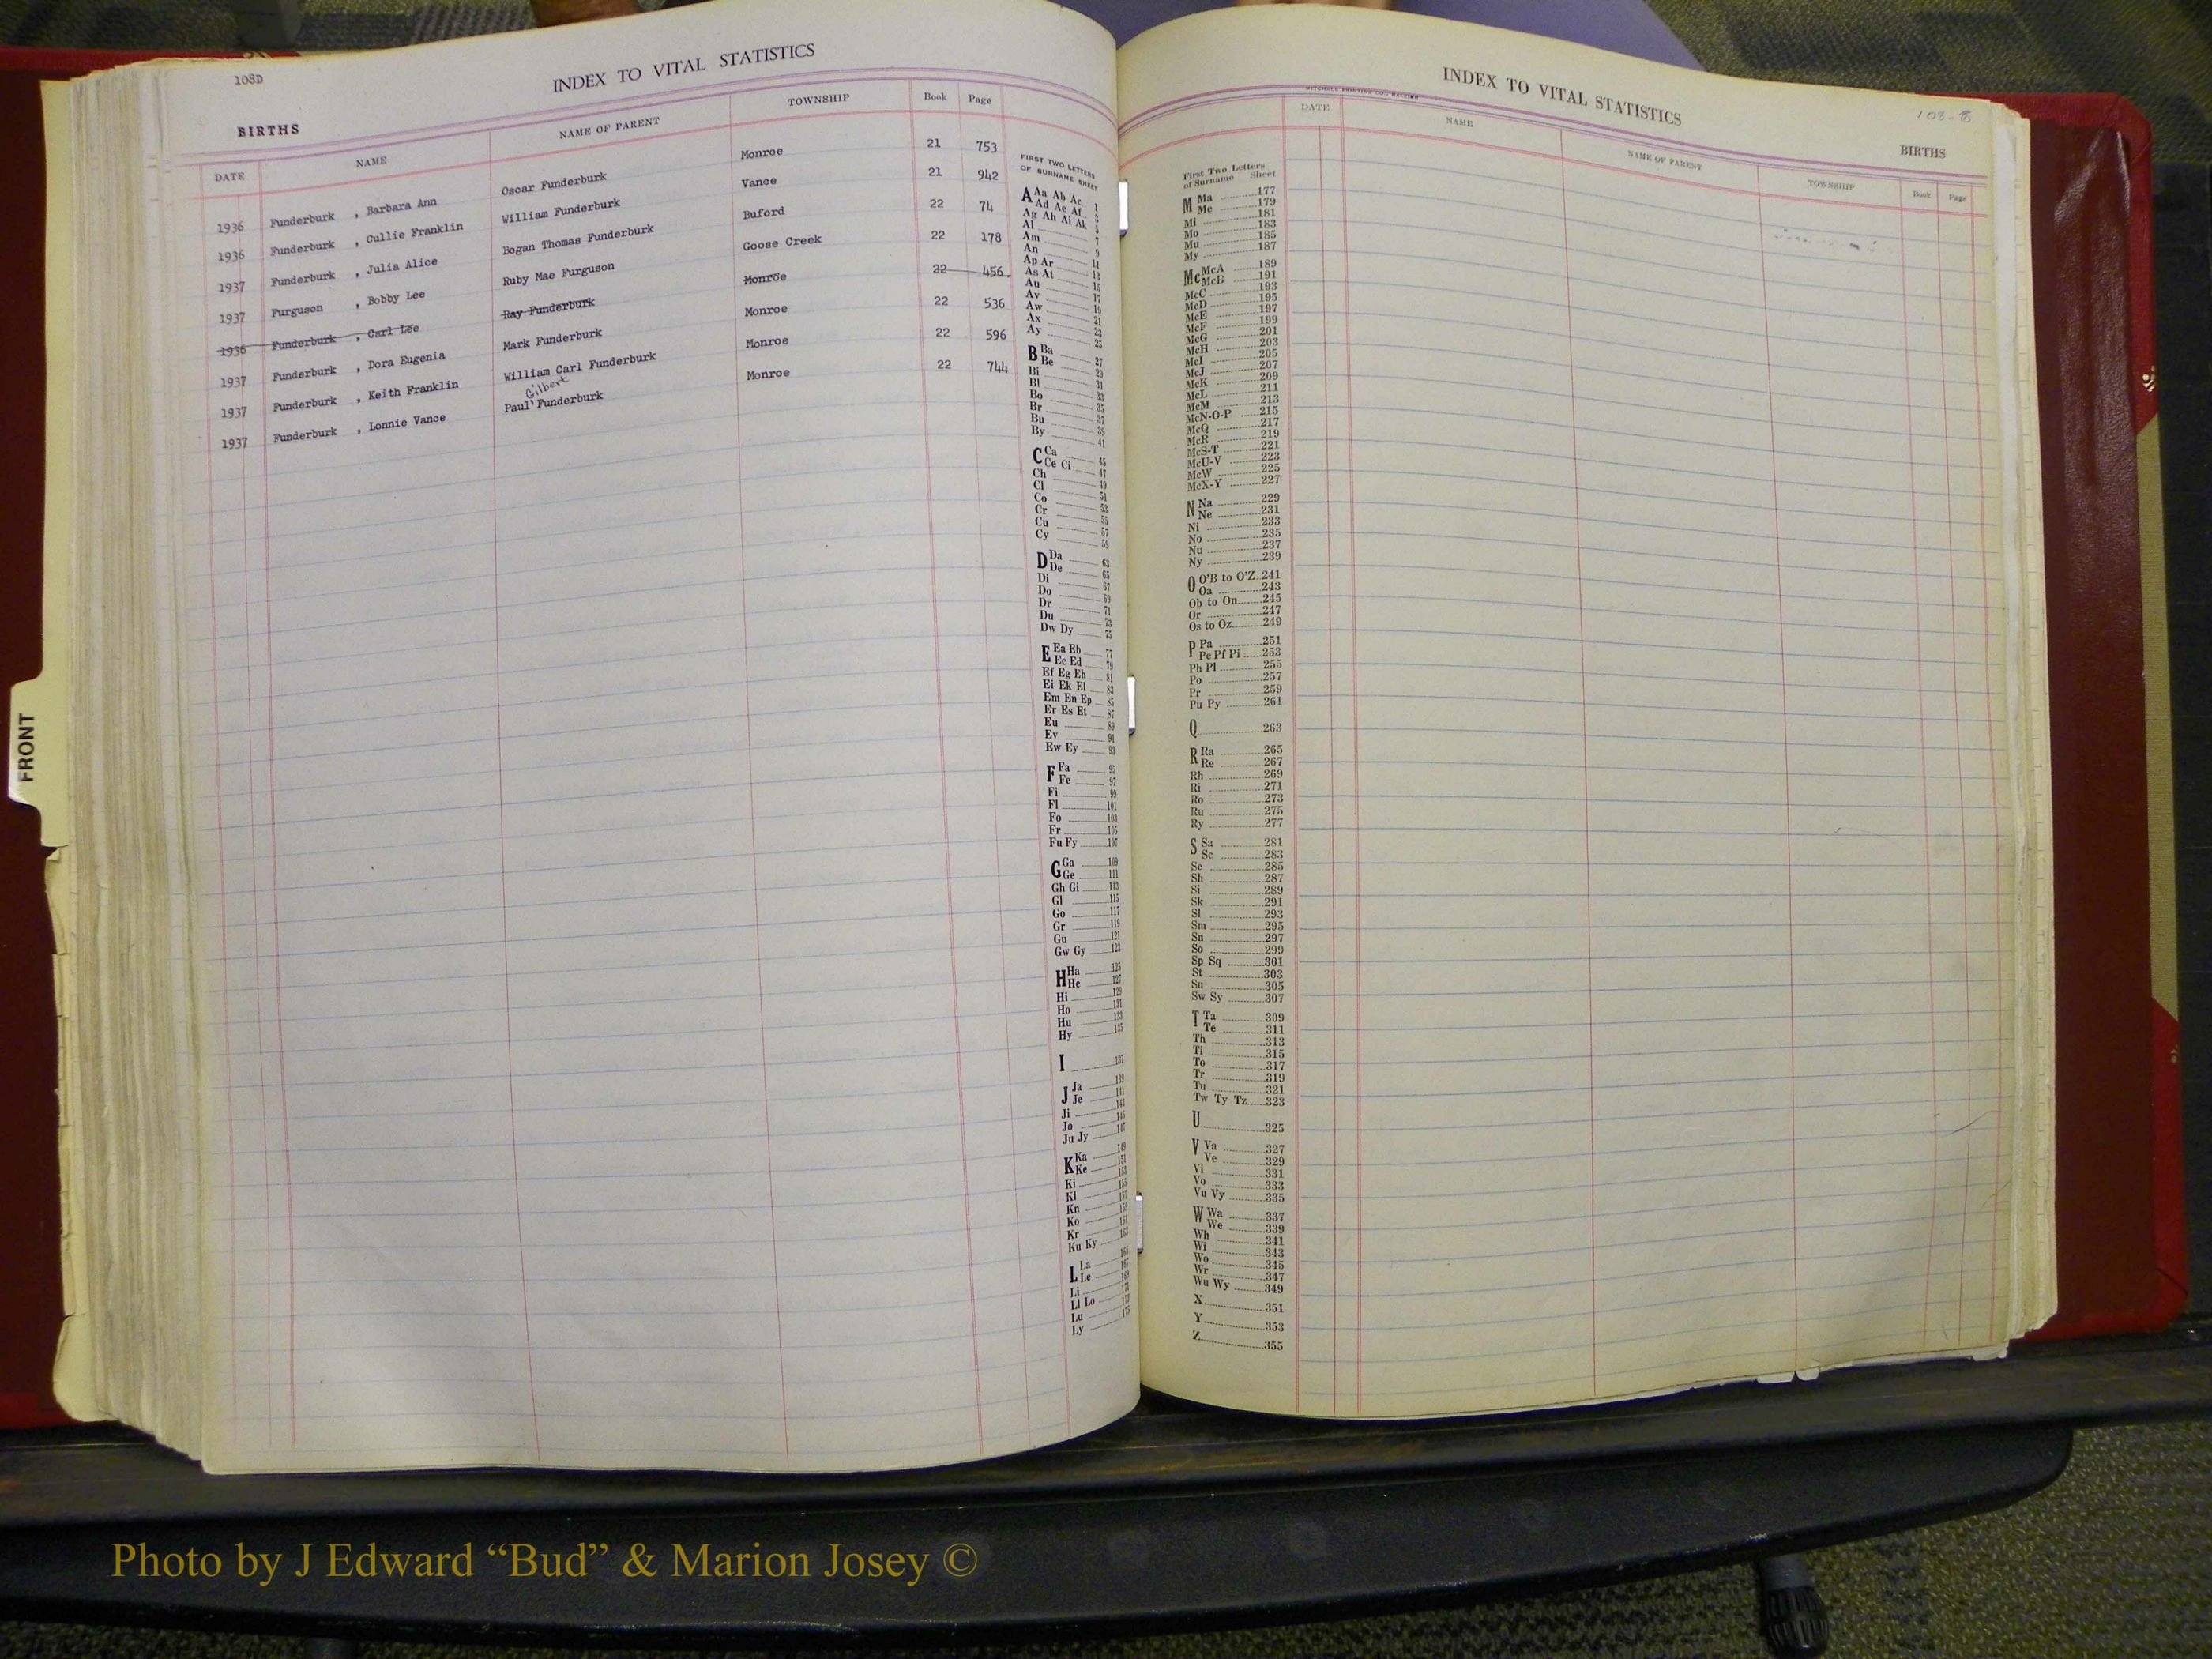 108D
INDEX TO VITAL STATISTICS
BIRTHS
DATE NAME NAME OF PARENT TOWNSHIP Book Page
1936 Funderburk , Barbara Ann Oscar Funderburk Monroe 21 753
1936 Funderburk , Cullie Franklin William Funderburk Vance 21 942
1937 Funderburk , Julia Alice Bogan Thomas Funderburk Buford 22 74
1937 Furguson , Bobby Lee Ruby Mae Furguson Goose Creek 22 178
1936 Funderburk , Carl Lee Ray Funderburk Monroe 22 456
1937 Funderburk , Dora Eugenia Mark Funderburk Monroe 22 536
1937 Funderburk , Keith Franklin William Carl Funderburk Monroe 22 596
Gilbert
1937 Funderburk , Lonnie Vance Paul Funderburk Monroe 22 744
FIRST TWO LETTERS
OF SURNAME SHEET
A Aa Ab Ac 1
Ad Ae Af 3
Ag Ah Ai Ak 5
Al 7
Am 9
An 11
Ap Ar 13
As At 15
Au 17
Av 19
Aw 21
Ax 23
Ay 25
B Ba 27
Be 29
Bi 31
Bl 33
Bo 35
Br 37
Bu 39
By 41
C Ca 45
Ce Ci 47
Ch 49
Cl 51
Co 53
Cr 55
Cu 57
Cy 59
D Da 63
De 65
Di 67
Do 69
Dr 71
Du 73
Dw Dy 75
E Ea Eb 77
Ec Ed 79
Ef Eg Eh 81
Ei Ek El 83
Em En Ep 85
Er Es Et 87
Eu 89
Ev 91
Ew Ey 93
F Fa 95
Fe 97
Fi 99
Fl 101
Fo 103
Fr 105
Fu Fy 107
G Ga 109
Ge 111
Gh Gi 113
Gl 115
Go 117
Gr 119
Gu 121
Gw Gy 123
H Ha 125
He 127
Hi 129
Ho 131
Hu 133
Hy 135
I 137
J Ja 139
Je 141
Ji 143
Jo 145
Ju Jy 147
K Ka 149
Ke 151
Ki 153
Kl 155
Kn 157
Ko 159
Kr 161
Ku Ky 163
L La 165
Le 167
Li 169
Ll Lo 171
Lu 173
Ly 175
FRONT
INDEX TO VITAL STATISTICS
MITCHELL PRINTING CO., RALEIGH
BIRTHS
DATE NAME NAME OF PARENT TOWNSHIP Book Page
First Two Letters
of Surname Sheet
M Ma 177
Me 179
Mi 181
Mo 183
Mu 185
My 187
Mc McA 189
McB 191
McC 193
McD 195
McE 197
McF 199
McG 201
McH 203
McI 205
McJ 207
McK 209
McL 211
McM 213
McN-O-P 215
McQ 217
McR 219
McS-T 221
McU-V 223
McW 225
McX-Y 227
N Na 229
Ne 231
Ni 233
No 235
Nu 237
Ny 239
O O'B to O'Z 241
Oa 243
Ob to On 245
Or 247
Os to Oz 249
P Pa 251
Pe Pf Pi 253
Ph Pl 255
Po 257
Pr 259
Pu Py 261
Q 263
R Ra 265
Re 267
Rh 269
Ri 271
Ro 273
Ru 275
Ry 277
S Sa 281
Sc 283
Se 285
Sh 287
Si 289
Sk 291
Sl 293
Sm 295
Sn 297
So 299
Sp Sq 301
St 303
Su 305
Sw Sy 307
T Ta 309
Te 311
Th 313
Ti 315
To 317
Tr 319
Tu 321
Tw Ty Tz 323
U 325
V Va 327
Ve 329
Vi 331
Vo 333
Vu Vy 335
W Wa 337
We 339
Wh 341
Wi 343
Wo 345
Wr 347
Wu Wy 349
X 351
Y 353
Z 355
Photo by J Edward “Bud” & Marion Josey ©